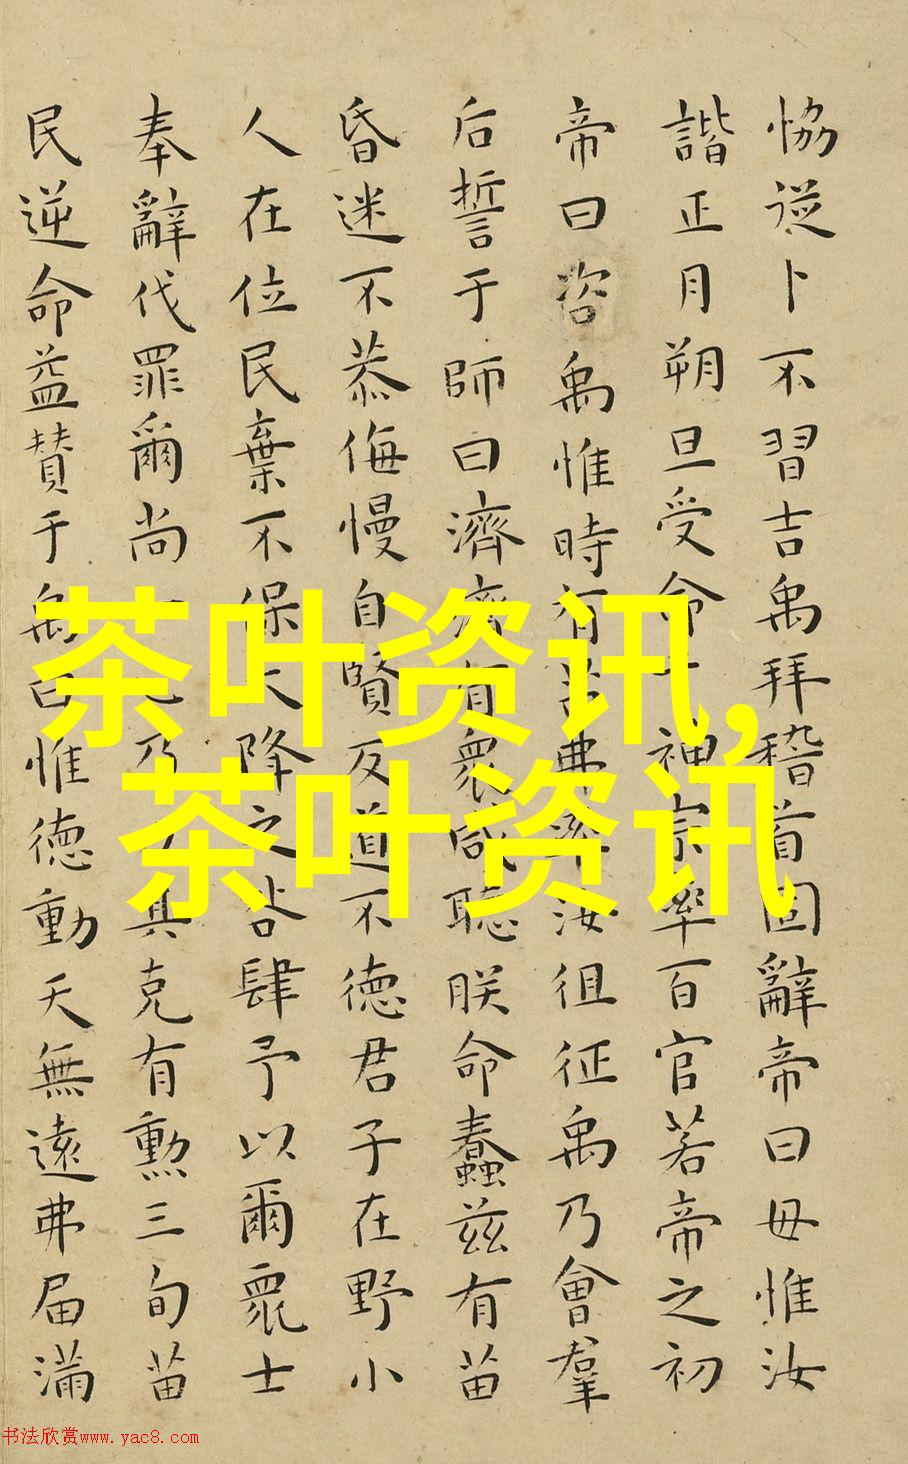 恊從卜不習吉禹拜稽首固辭帝曰毋惟汝
諧正月朔旦受命于神宗率百官若帝之初
帝曰咨禹惟時有苗弗率汝徂征禹乃會羣
后誓于師曰濟濟有衆咸聽朕命蠢兹有苗
昏迷不恭侮慢自賢反道不徳君子在野小
人在位民棄不保天降之咎肆予以爾衆士
奉辭伐罪爾尚乃其克有勲三旬苗
民逆命益賛于禹曰惟徳動天無遠弗届滿
茶叶资讯,
茶叶资讯
书法欣赏www.yac8.com